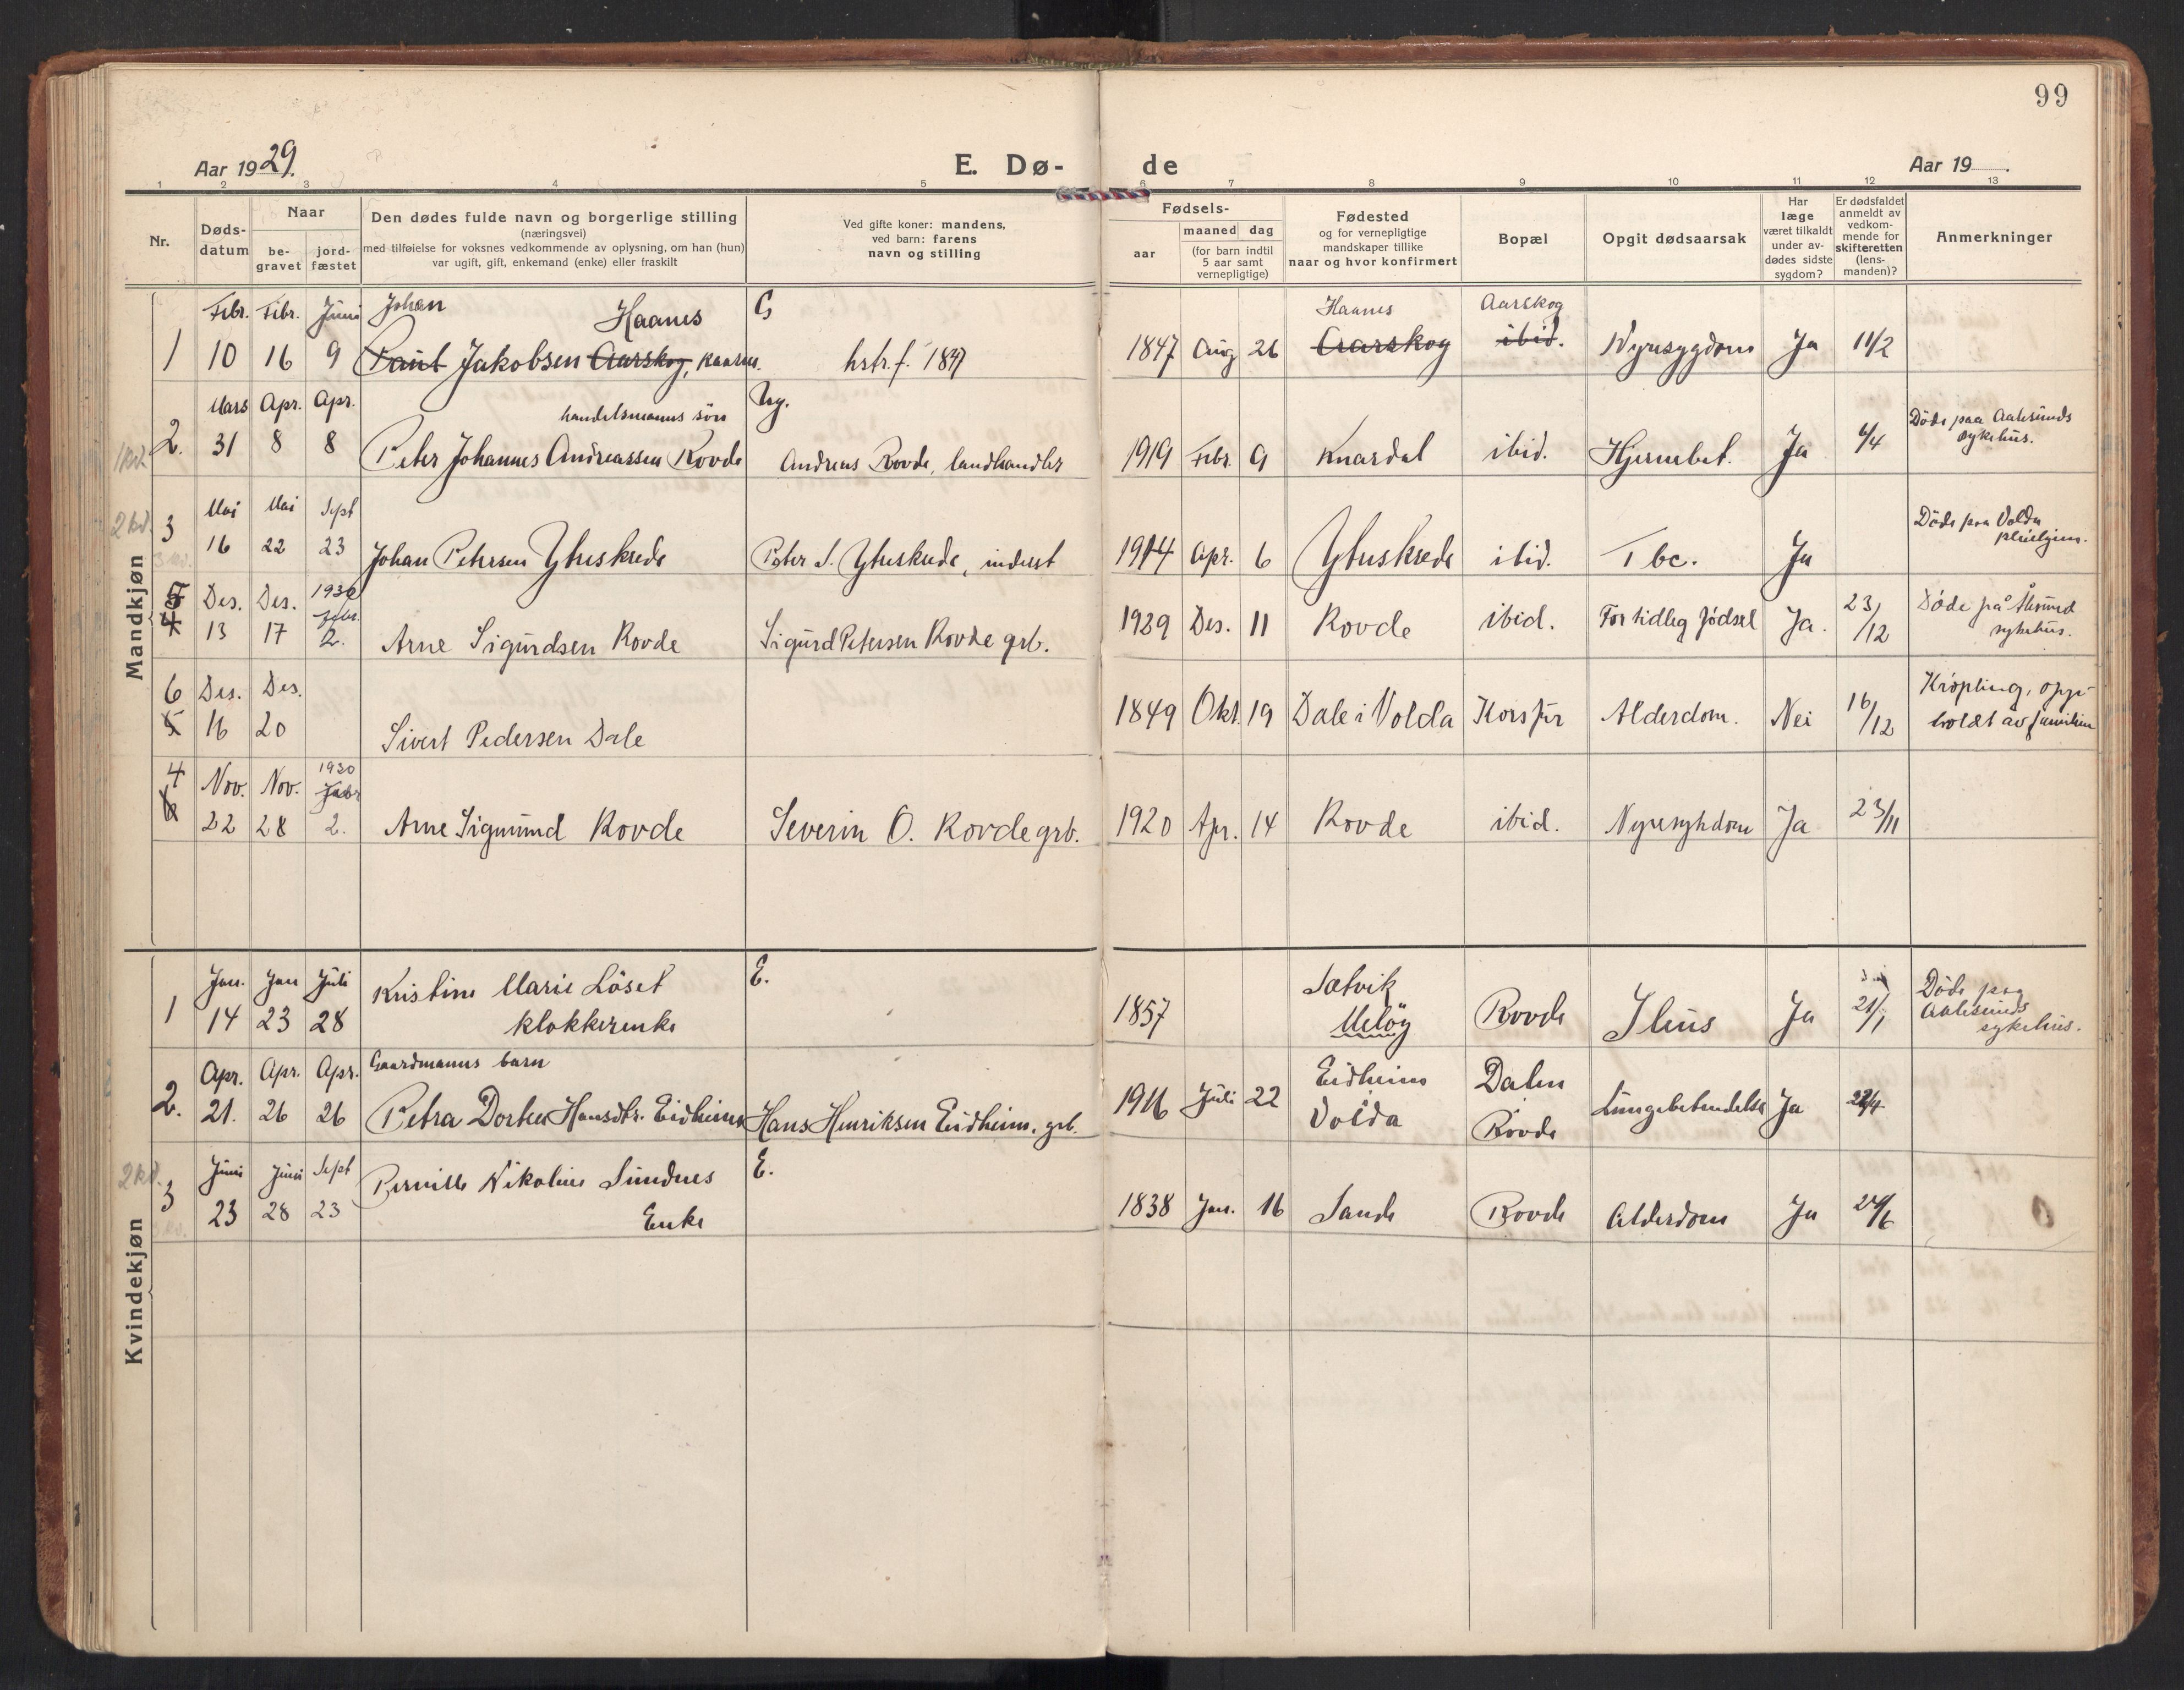 99
Aar 1929.
E. Dø-
de
Aar 19
1 2 3 4 5 6 7 8 9 10 11 12 13
Nr.
Døds-
datum
Naar
be-
gravet
jord-
fæstet
Den dødes fulde navn og borgerlige stilling
(næringsvei)
med tilføielse for voksnes vedkommende av oplysning, om han (hun)
var ugift, gift, enkemand (enke) eller fraskilt
Ved gifte koner: mandens,
ved barn: farens
navn og stilling
Fødsels-
aar
maaned dag
(for barn indtil
5 aar samt
vernepligtige)
Fødested
og for vernepligtige
mandskaper tillike
naar og hvor konfirmert
Bopæl
Opgit dødsaarsak
Har
læge
været tilkaldt
under av-
dødes sidste
sygdom?
Er dødsfaldet
anmeldt av
vedkom-
mende for
skifteretten
(lens-
manden)?
Anmerkninger
Mandkjøn
Febr. Febr. Juni Johan Haanes G Haanes Aarskog
1 10 16 9 Jakobsen Aarskog, kaarm. 1847 Aug 26 Aarskog ibid. Nyresygdom Ja 11/2
Mars Apr. Apr. handelsmanns sön Ug. Döde paa Aalesunds
2. 31 8 8 Peter Johannes Andreassen Rovde Andreas Rovde, landhandler 1919 Febr. 9 Knardal ibid. Hjernebet. Ja 6/4 sykehus.
2 kd.
Mai Mai Sept Döde paa Volda
3 16 22 23 Johan Petersen Ytreskrede Peter S. Ytreskrede, inderst 1914 Apr. 6 Ytreskrede ibid. Tbc. Ja pleiehjem.
5 Des. Des. 1930 Febr. Døde på Ålesund
4 13 17 2. Arne Sigurdsen Rovde Sigurd Petersen Rovde grb. 1929 Des. 11 Rovde ibid. For tidleg fødsel Ja. 23/12 sykehus.
6 Des. Des. Krøpling, opp-
5 16 20 Sivert Pedersen Dale 1849 Okt. 19 Dale i Volda Korsfur Alderdom. Nei 16/12 holdt av familien
4 Nov. Nov. 1930 Febr
6 22 28 2. Arne Sigmund Rovde Severin O. Rovde grb. 1920 Apr. 14 Rovde ibid. Nyresykdom Ja 23/11
Kvindekjøn
Jan. Jan Juli Kristine Marie Löset E. Satvik Döde paa
1 14 23 28 klokkerenke 1857 Melöy Rovde Ileus Ja 21/1 Aalesunds
sykehus.
Apr. Apr. Apr. Gaardmanns barn Eidheim Dalen
2. 21. 26 26 Petra Dorthea Hansdtr. Eidheim Hans Henriksen Eidheim, grb. 1916 Juli 22 Volda Rovde Lungebetendelse Ja 22/4
2 kd.
Juni Juni Sept Pernille Nikoline Sundnes E.
3 23 28 23 Enke 1838 Jan. 16 Sande Rovde Alderdom Ja 24/6